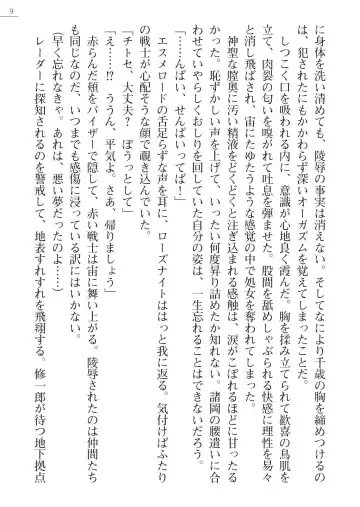 9
に身体を洗い清めても、陵辱の事実は消えない。そしてなにより千歳の胸を締めつけるの
は、犯されたにもかかわらず深いオーガズムを覚えてしまったことだ。
しつこく口を吸われる内に、意識が心地良く霞んだ。胸を揉み立てられて歓喜の鳥肌を
立て、肉裂の匂いを嗅がれて吐息を弾ませた。股間を舐めしゃぶられる快感に理性を易々
と消し飛ばされ、宙にたゆたうような感覚の中で処女を奪われてしまった。
神聖な膣奥に汚い精液をどくどくと注ぎ込まれる感触は、涙がこぼれるほどに甘ったる
かった。恥ずかしい声を上げて、いったい何度昇り詰めたか知れない。諸岡の腰遣いに合
わせていやらしくおしりを回していた自分の姿は、一生忘れることはできないだろう。
「……んぱい、せんぱいってば！」
エスメロードの舌足らずな声を耳に、ローズナイトははっと我に返る。気付けばふたり
の戦士が心配そうな顔で覗き込んでいた。
「チトセ、大丈夫？　ぼうっとして」
「え……!?　ううん、平気よ。さあ、帰りましょう」
赤らんだ頬をバイザーで隠して、赤い戦士は宙に舞い上がる。陵辱されたのは仲間たち
も同じなのだ、いつまでも感傷に浸っている訳にはいかない。
（早く忘れなきゃ。あれは、悪い夢だったのよ――）
レーダーに探知されるのを警戒して、地表すれすれを飛翔する。修一郎が待つ地下拠点